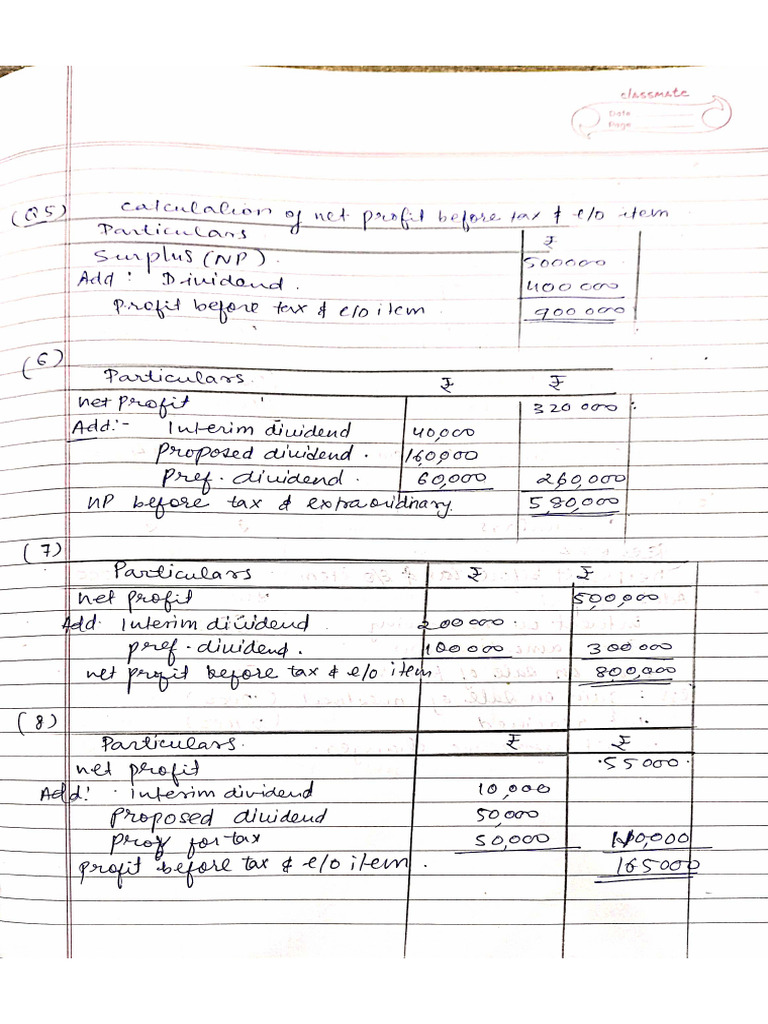 classmate
Date
Page
(Q5) Calculation of net profit before tax & e/o item
Particulars ₹
Surplus (NP). 500000
Add: Dividend. 400 000
Profit before tax & e/o item 900 000
(6)
Particulars. ₹ ₹
net profit 320 000
Add:- Interim dividend 40,000
Proposed dividend. 160,000
Pref. dividend. 60,000 260,000
NP before tax & extraoridnary 5,80,000
(7)
Particulars ₹ ₹
net profit 500,000
Add. Interim dividend 200000
pref. dividend. 100000 300000
net profit before tax & e/o item 800,000
(8)
Particulars. ₹ ₹
net profit 55000
Add: Interim dividend 10,000
Proposed dividend 50,000
prov for tax 50,000 110,000
profit before tax & e/o item. 165000